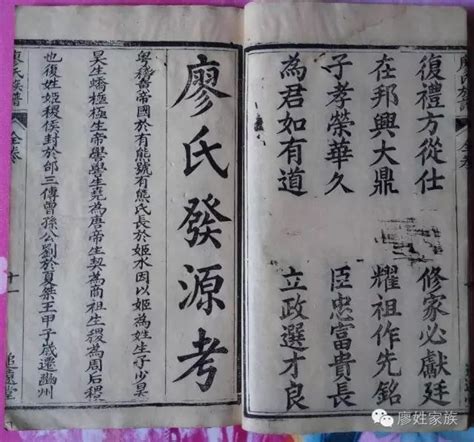 復禮方從仕 修家必獻廷
在邦興大鼎 耀祖作先銘
子孝榮華久 臣忠富貴長
為君如有道 立政選才良
廖氏發源考
粵稽黃帝國於有能號有熊氏長於姬水因以姬為姓生子少昊
昊生蟜極極生帝嚳嚳生堯為唐帝生契為商祖生稷為周后稷
也復姓姬稷侯封於邰三傳曾孫公劉於夏桀王甲子歲遷豳州
廖氏族譜 全卷 十一 追遠堂
廖姓家族